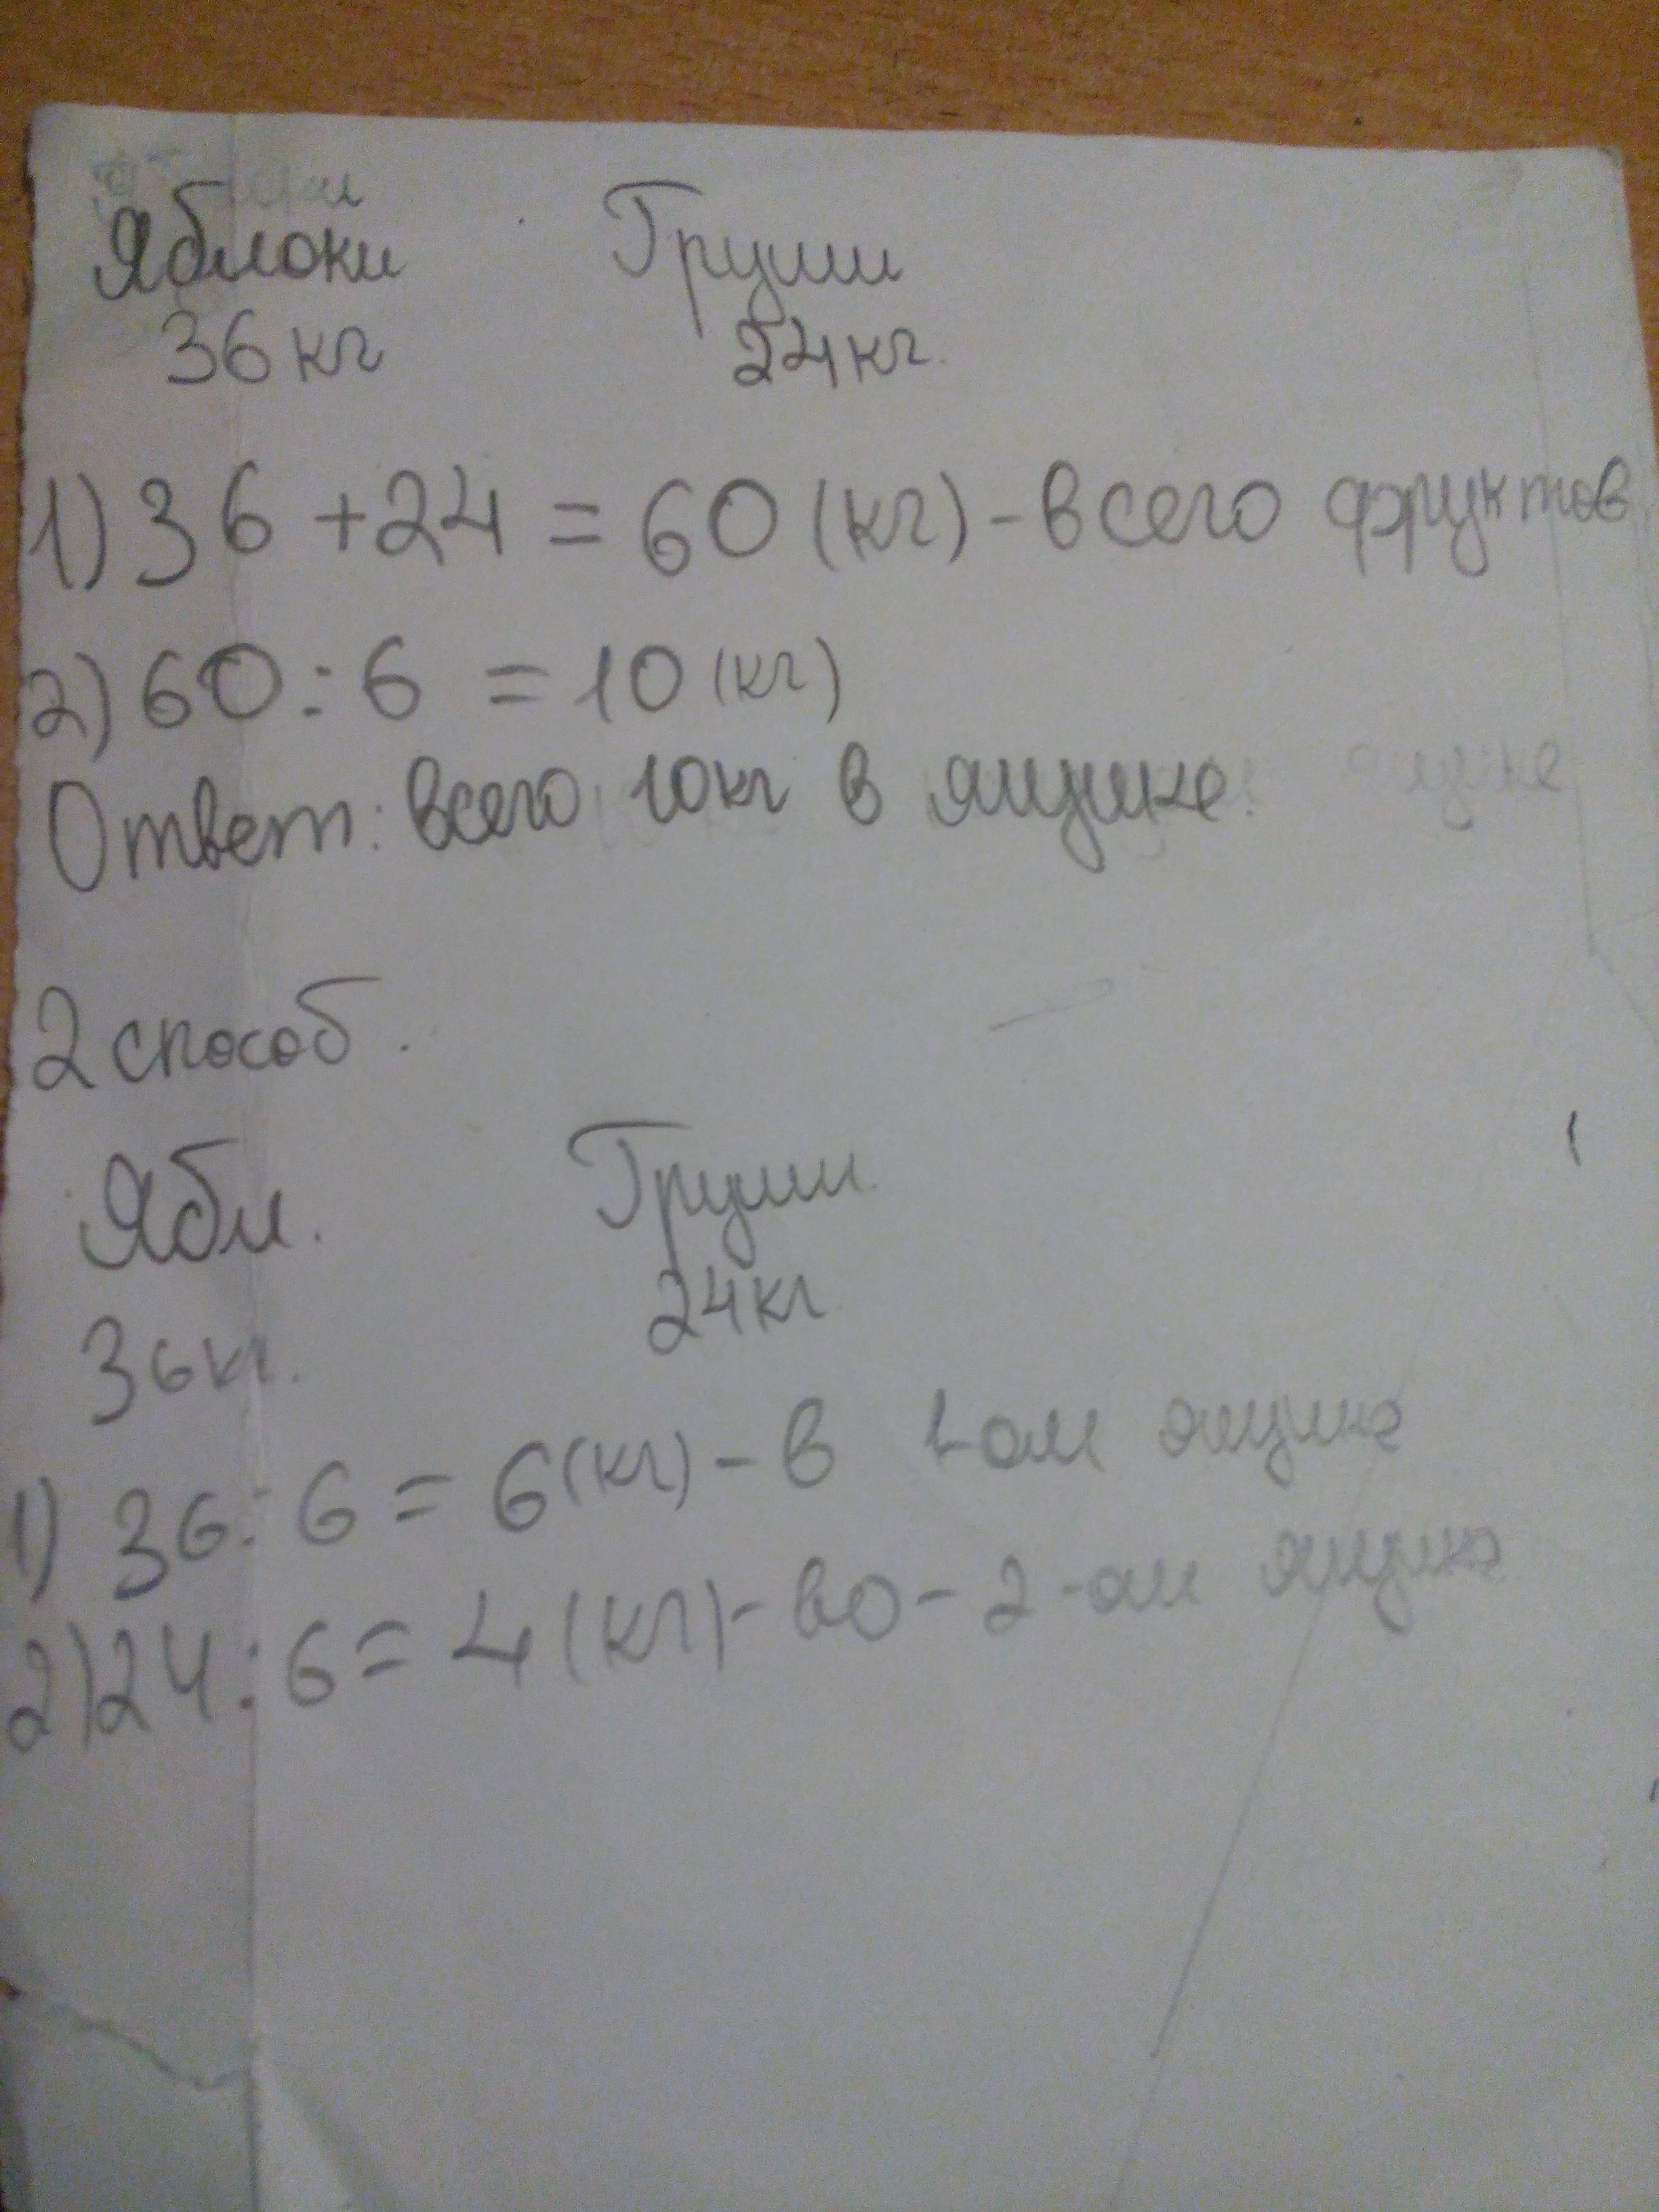 Яблоки Груши
36 кг 24 кг.
1) 36 + 24 = 60 (кг) - всего фруктов
2) 60 : 6 = 10 (кг)
Ответ: всего 10 кг в ящике.
2 способ.
Ябл. Груши.
36 кг. 24 кг.
1) 36 : 6 = 6 (кг) - в 1-ом ящике
2) 24 : 6 = 4 (кг) - во - 2-ом ящике